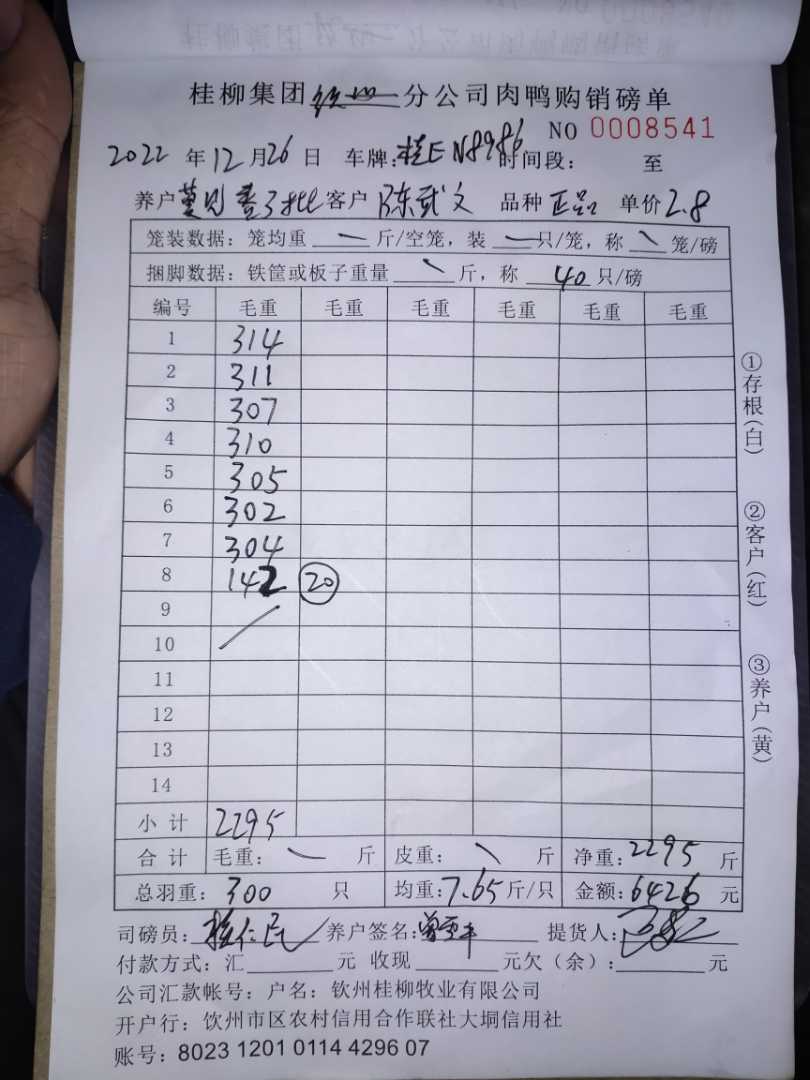 桂柳集团钦州分公司肉鸭购销磅单
NO 0008541
2022 年 12 月 26 日 车牌:桂E N8986 时间段: 至
养户 客户 陈武文 品种 正品 单价 2.8
笼装数据: 笼均重 — 斤/空笼, 装 — 只/笼, 称 \ 笼/磅
捆脚数据: 铁筐或板子重量 \ 斤, 称 40 只/磅
编号 毛重 毛重 毛重 毛重 毛重 毛重
1 314
2 311
3 307
4 310
5 305
6 302
7 304
8 142 20
9
10
11
12
13
14
小 计 2295
合 计 毛重: — 斤 皮重: \ 斤 净重: 2295 斤
总羽重: 300 只 均重: 7.65 斤/只 金额: 6426 元
司磅员: 养户签名: 提货人:
付款方式: 汇 元 收现 元欠(余): 元
公司汇款帐号: 户名: 钦州桂柳牧业有限公司
开户行: 饮州市区农村信用合作联社大垌信用社
账号: 8023 1201 0114 4296 07
①存根(白)
②客户(红)
③养户(黄)